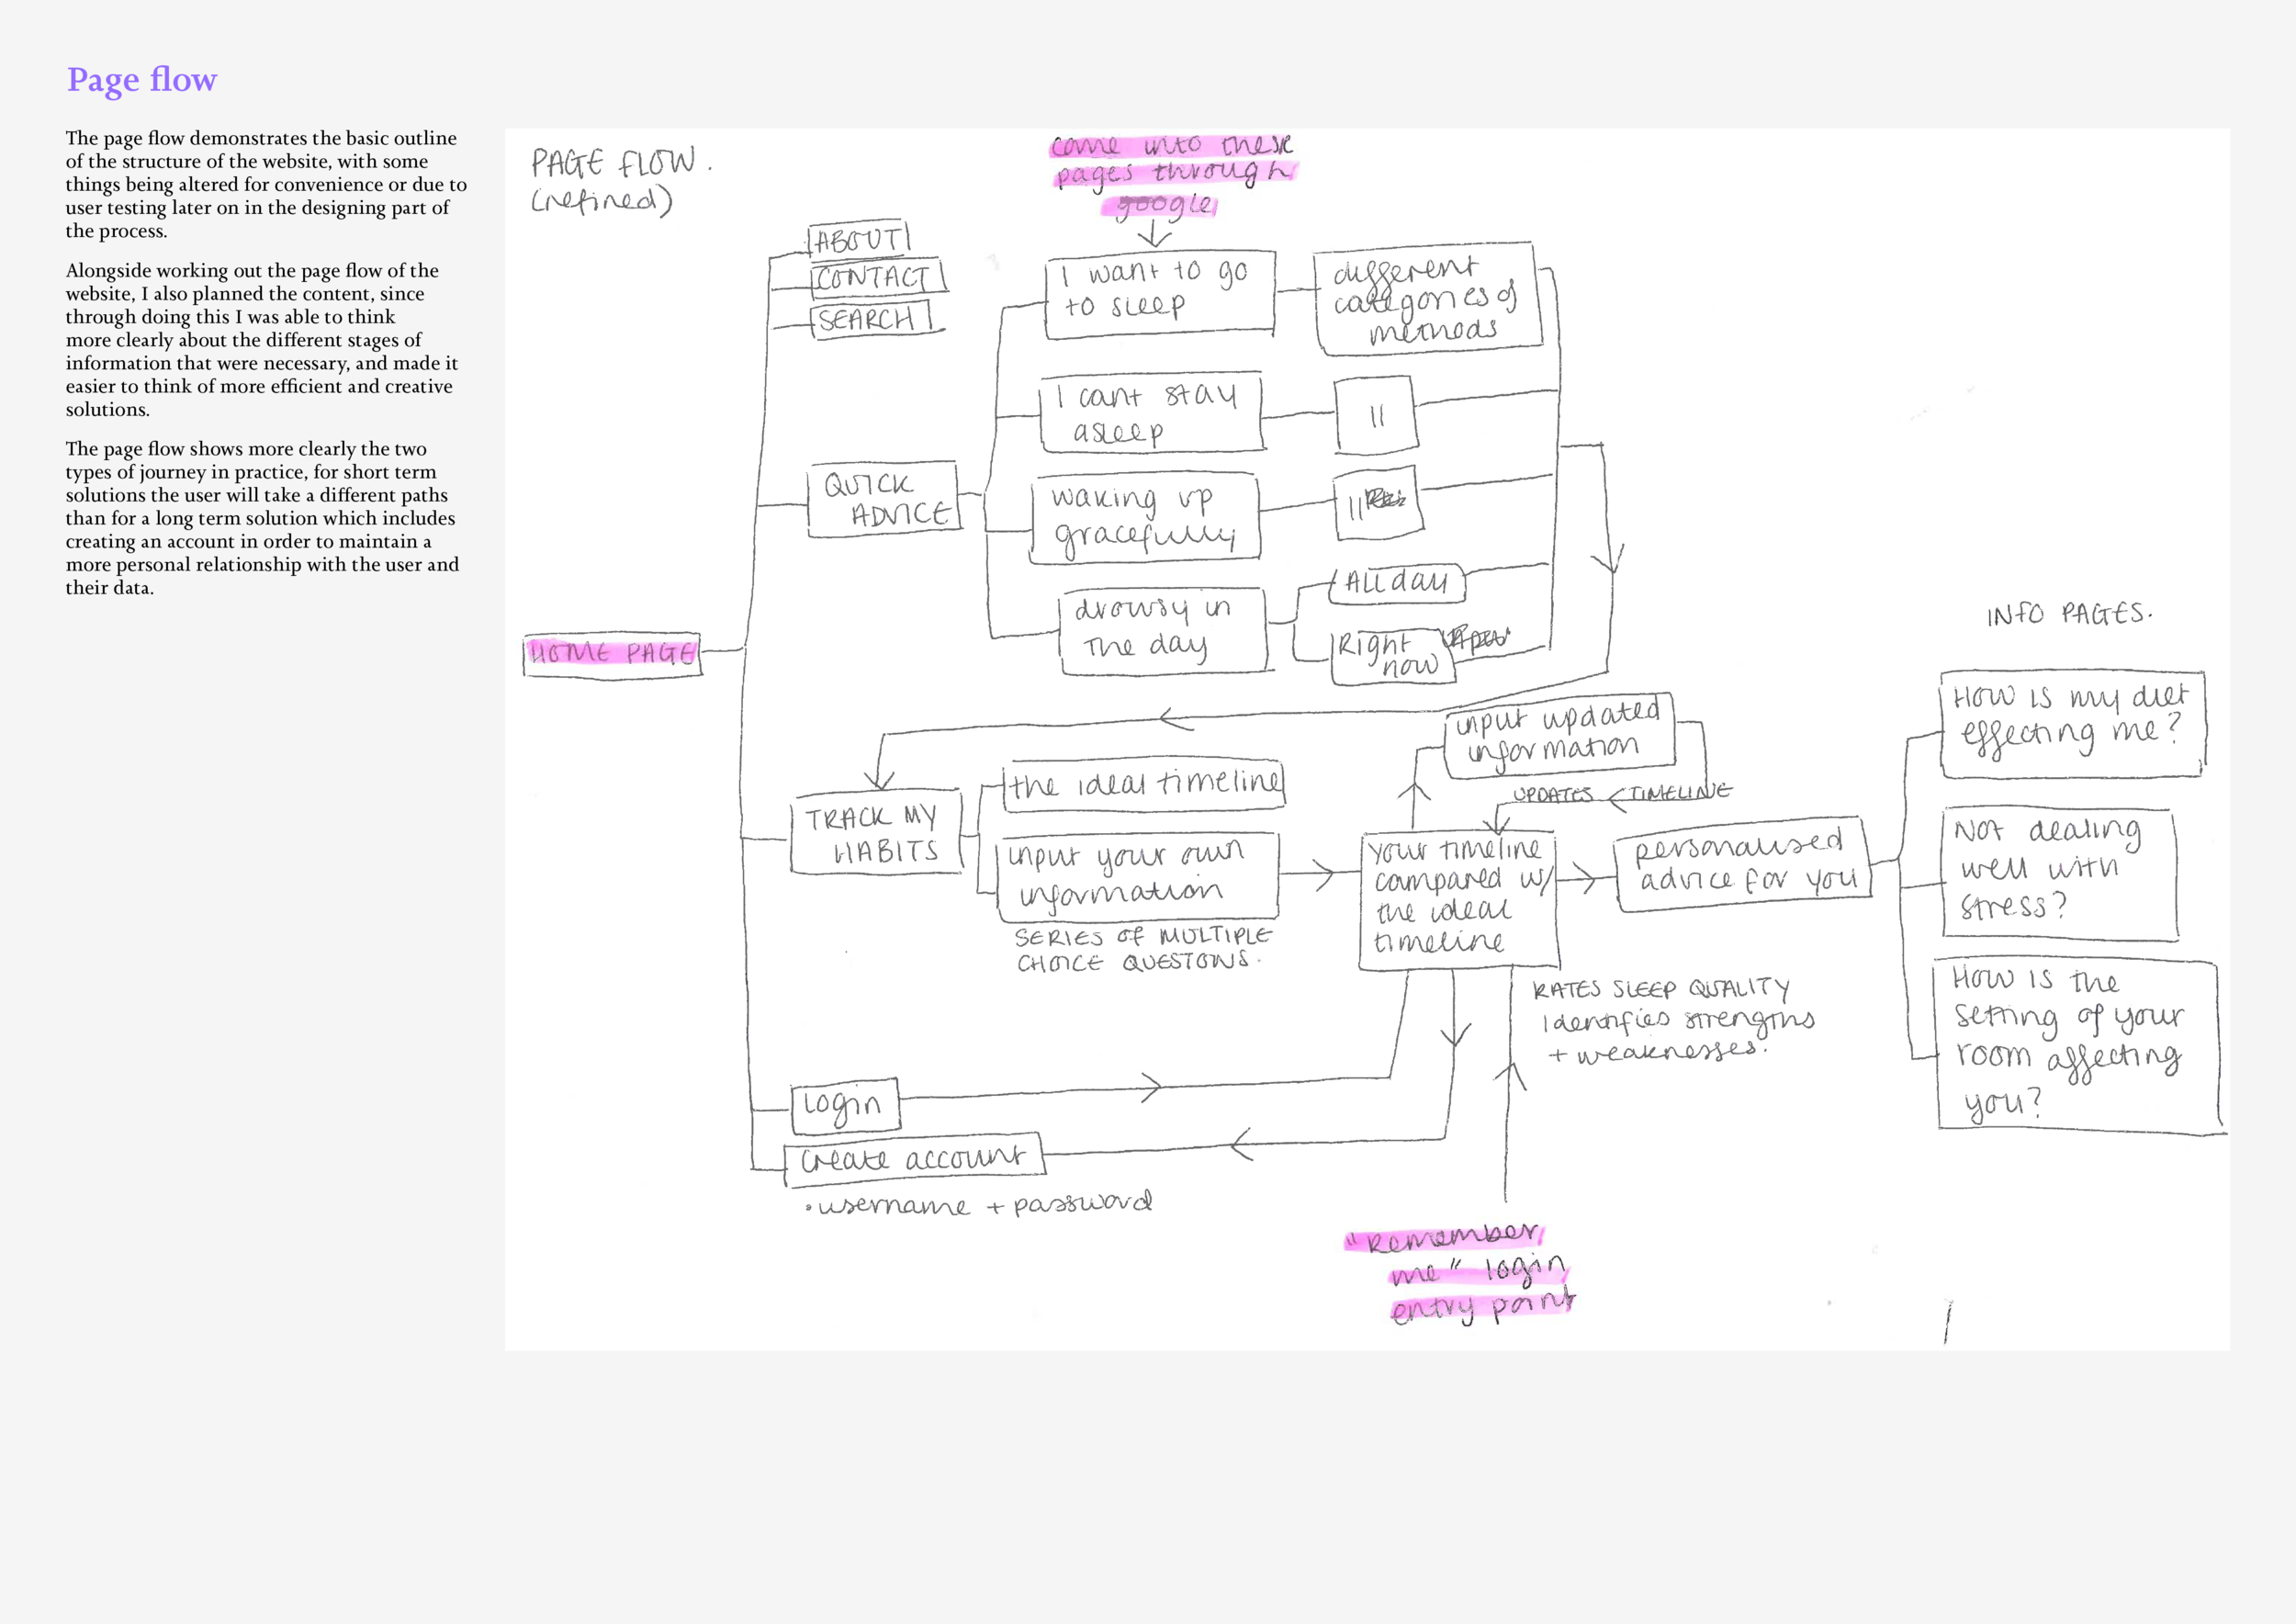 Page flow
The page flow demonstrates the basic outline
of the structure of the website, with some
things being altered for convenience or due to
user testing later on in the designing part of
the process.
Alongside working out the page flow of the
website, I also planned the content, since
through doing this I was able to think
more clearly about the different stages of
information that were necessary, and made it
easier to think of more efficient and creative
solutions.
The page flow shows more clearly the two
types of journey in practice, for short term
solutions the user will take a different paths
than for a long term solution which includes
creating an account in order to maintain a
more personal relationship with the user and
their data.
PAGE FLOW.
(refined)
come into these
pages through
google
ABOUT
CONTACT
SEARCH
I want to go
to sleep
different
categories of
methods
I cant stay
asleep
"
QUICK
ADVICE
waking up
gracefully
"
drowsy in
the day
All day
Right
now
HOME PAGE
INFO PAGES.
How is my diet
effecting me?
input updated
information
UPDATES TIMELINE
the ideal timeline
TRACK MY
HABITS
input your own
information
SERIES OF MULTIPLE
CHOICE QUESTONS.
your timeline
compared w/
the ideal
timeline
personalised
advice for you
Not dealing
well with
stress?
RATES SLEEP QUALITY
Identifies strengths
+ weaknesses.
How is the
setting of your
room affecting
you?
login
create account
• username + password
"Remember
me" login
entry point